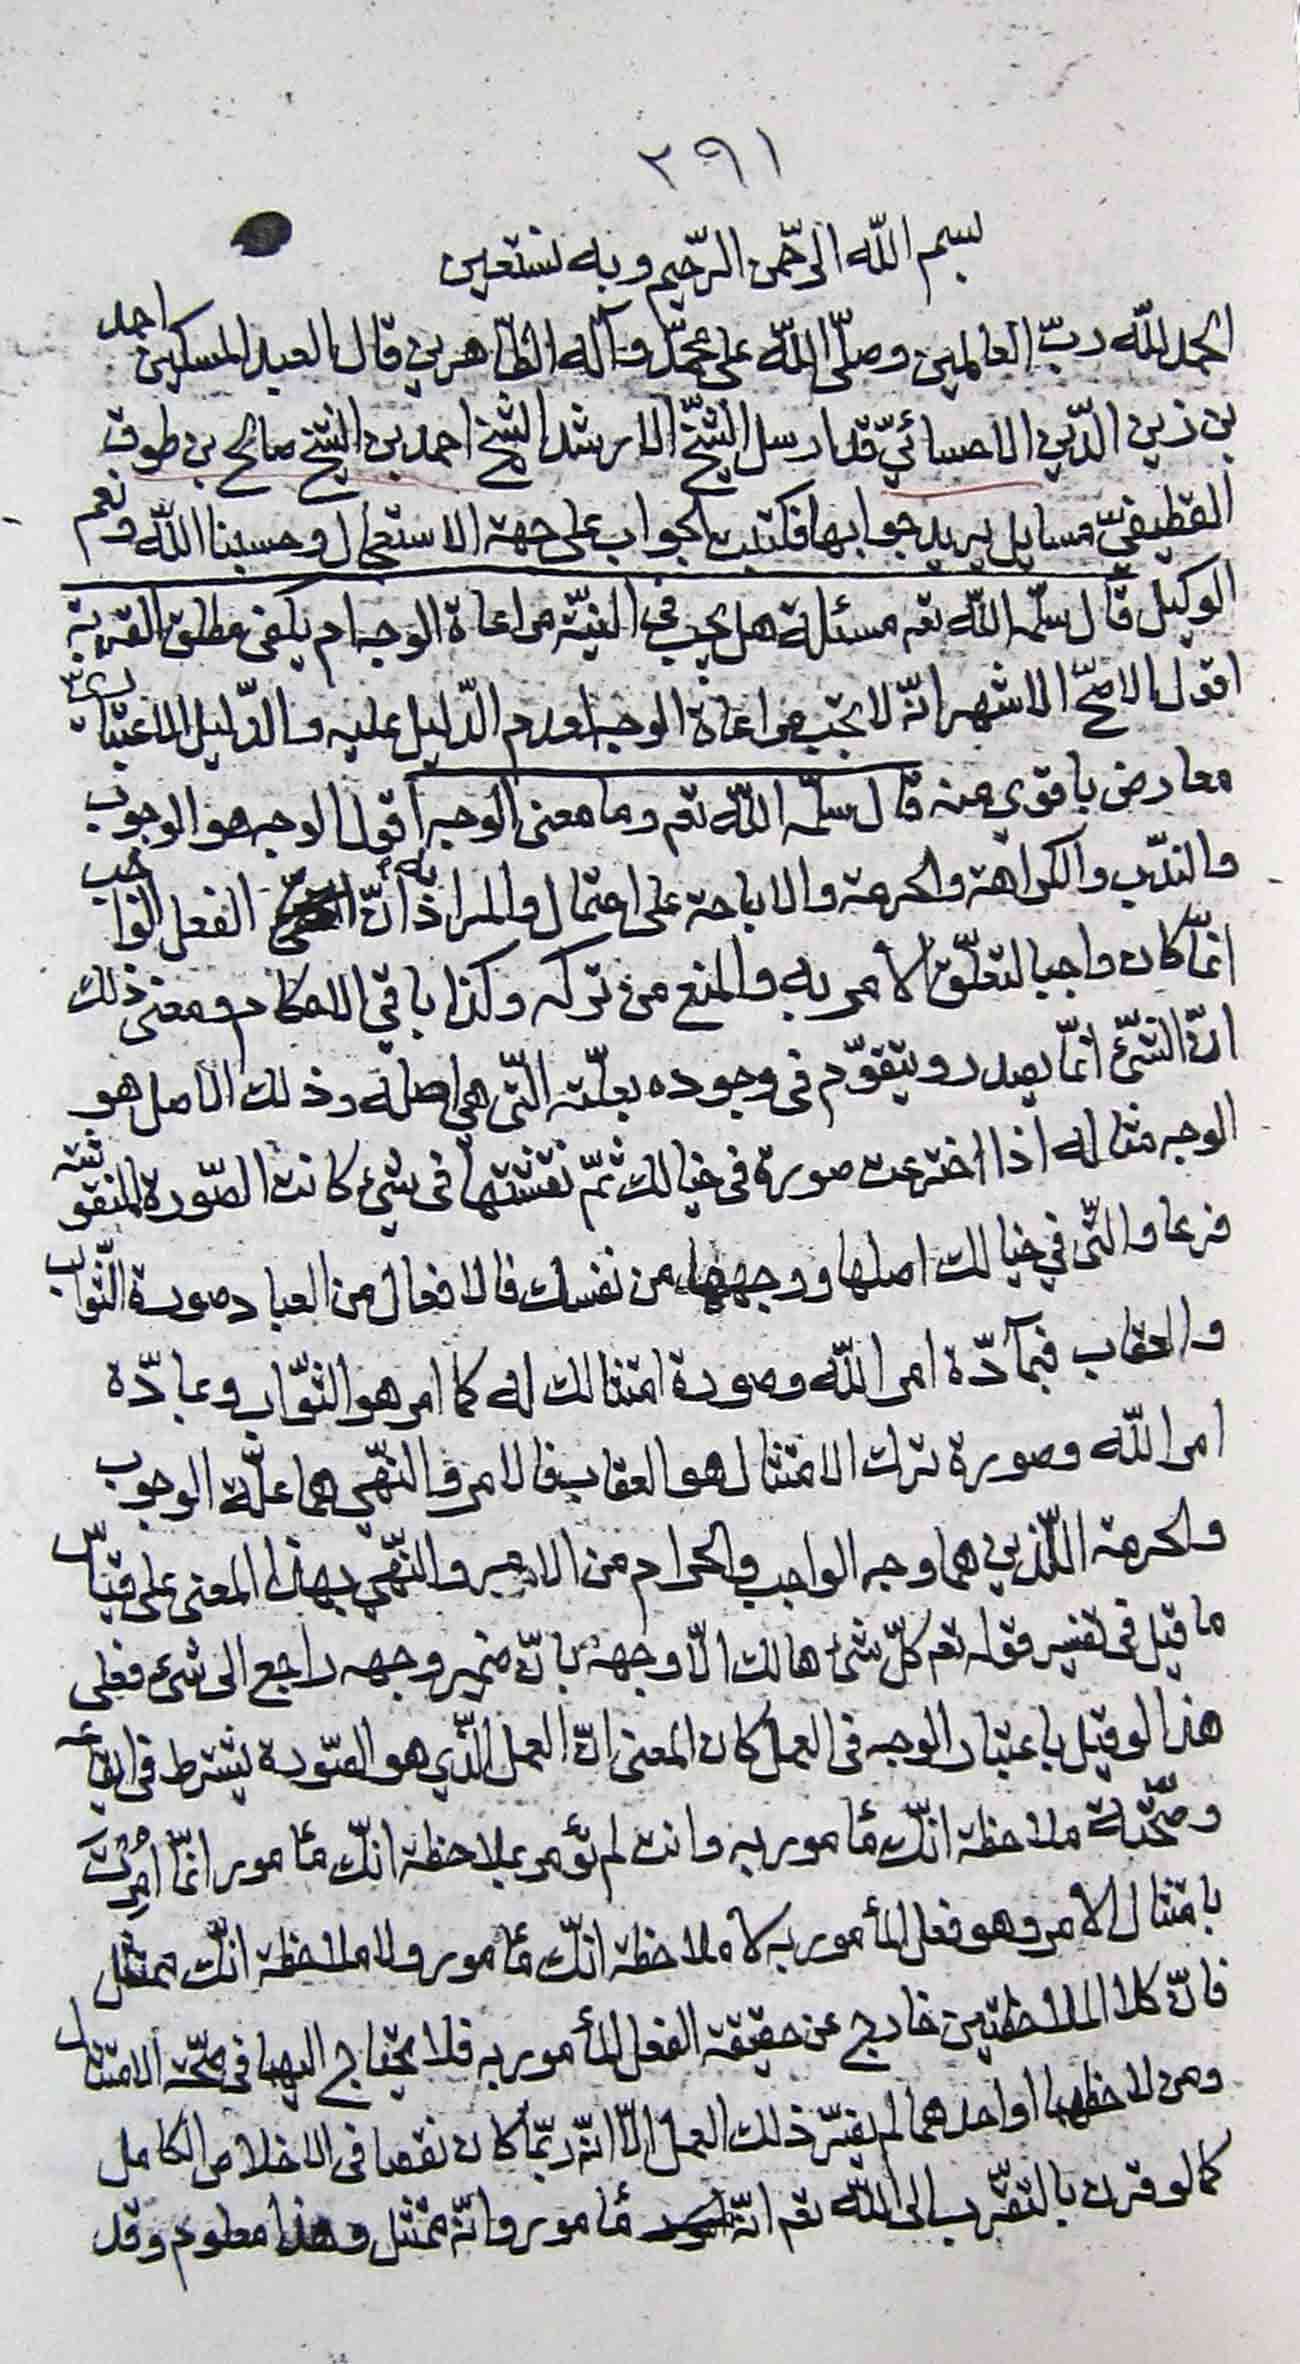 ٣٩١
بسم الله الرحمن الرحيم وبه نستعين
الحمد لله رب العالمين وصلى الله على محمد وآله الطاهرين قال العبد المسكين احمد
بن زين الدين الاحسائي قد ارسل الشيخ الارشد الشيخ احمد بن الشيخ صالح بن طوق
القطيفي مسايل يريد جوابها فكتبت الجواب على جهة الاستعجال وحسبنا الله ونعم
الوكيل قال سلمه الله تعه مسئلة هل يجب في النية مراعاة الوجه ام يكفى مطلق القربة
اقول الاصح الاشهر انه لا يجب مراعاة الوجه لعدم الدليل عليه والدليل الاعتباري
معارض باقوى منه قال سلمه الله تعه وما معنى الوجه اقول الوجه هو الوجوب
والندب والكراهة والحرمة والاباحة على احتمال والمراد به ان الفعل الواجب
انما كان واجبا لتعلق الامر به والمنع من تركه وكذا باقي الاحكام ومعنى ذلك
ان الشئ انما يصدر ويتقوم فى وجوده بعلته التى هي اصله وذلك الاصل هو
الوجه مثاله اذا اخترعت صورة فى خيالك ثم نقشتها فى شئ كانت الصورة المنقوشة
فرعا والتى في خيالك اصلها ووجهها من نفسك فالافعال من العباد صورة الثواب
والعقاب فمادة امر الله وصورة امتثالك له كما امر هو الثواب ومادة
امر الله وصورة ترك الامتثال هو العقاب فالامر والنهي هما علة الوجوب
والحرمة اللذين هما وجه الواجب والحرام من الامر والنهي بهذا المعنى على قياس
ما قيل فى تفسير قوله تعه كل شئ هالك الا وجهه بان ضمير وجهه راجع الى شئ فعلى
هذا لو قيل باعتبار الوجه فى العمل كان المعنى ان العمل الذي هو الصورة يشترط في ايقاعه
وصحته ملاحظة انك مأمور به وانت لم تؤمر بملاحظة انك مأمور انما امرت
بامتثال الامر وهو فعل المأمور به لا ملاحظة انك مأمور ولا ملاحظة انك ممتثل
فان كلا الملاحظتين خارج عن حقيقة الفعل المأمور به فلا يحتاج اليهما فى صحة الامتثال
ومن لاحظهما او احدهما لم يضر ذلك العمل الا انه ربما كان نقصا فى الاخلاص الكامل
كما لو قرن بالتقرب الى الله تعه انه مأمور وانه ممتثل وهذا معلوم وقد